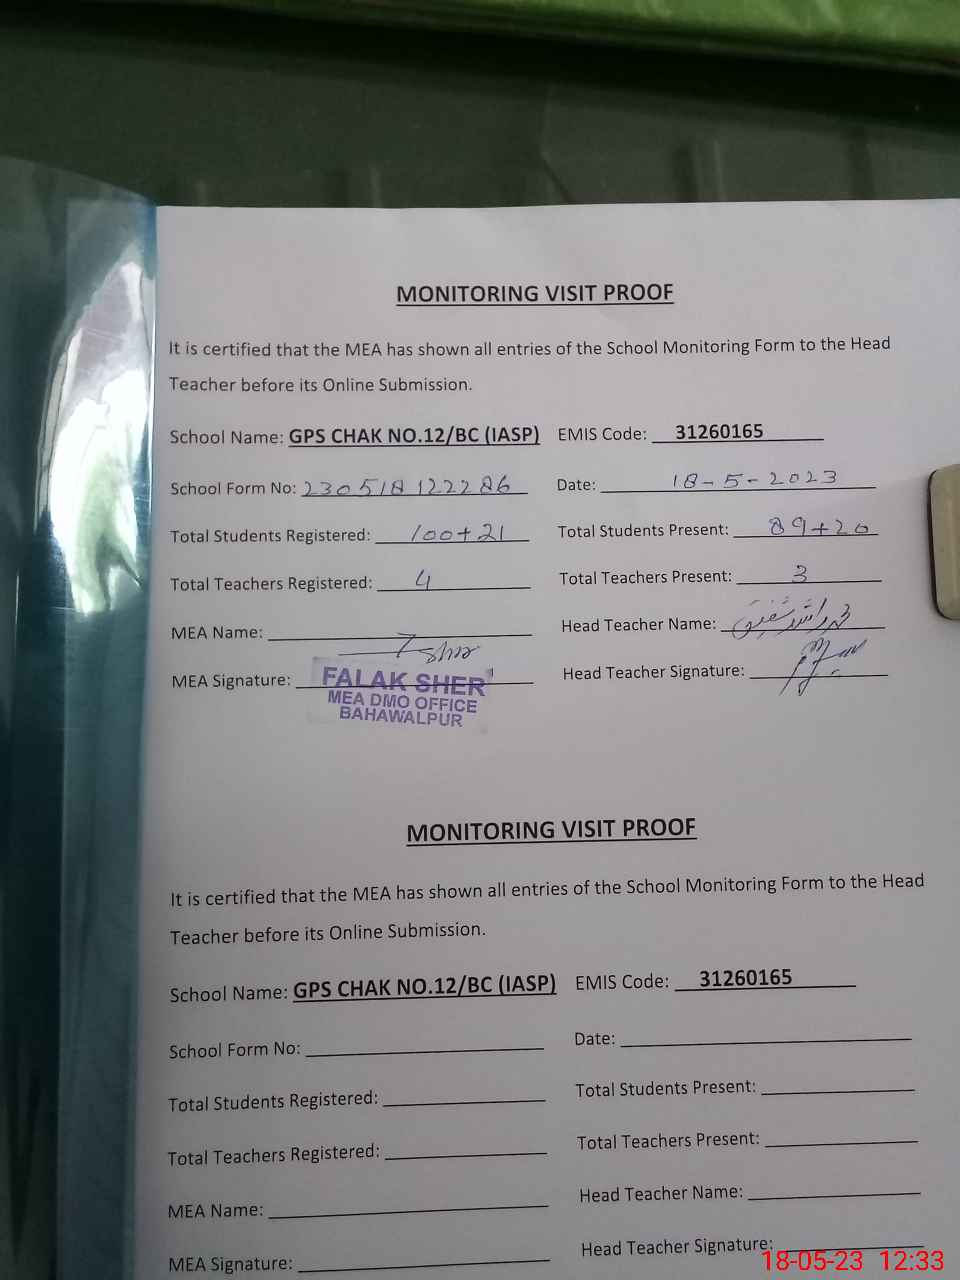 MONITORING VISIT PROOF
It is certified that the MEA has shown all entries of the School Monitoring Form to the Head
Teacher before its Online Submission.
School Name: GPS CHAK NO.12/BC (IASP) EMIS Code: 31260165
School Form No: 230518122286 Date: 18-5-2023
Total Students Registered: 100+21 Total Students Present: 89+20
Total Teachers Registered: 4 Total Teachers Present: 3
MEA Name: Head Teacher Name:
MEA Signature: Head Teacher Signature:
FALAK SHER
MEA DMO OFFICE
BAHAWALPUR
MONITORING VISIT PROOF
It is certified that the MEA has shown all entries of the School Monitoring Form to the Head
Teacher before its Online Submission.
School Name: GPS CHAK NO.12/BC (IASP) EMIS Code: 31260165
School Form No: Date:
Total Students Registered: Total Students Present:
Total Teachers Registered: Total Teachers Present:
MEA Name: Head Teacher Name:
MEA Signature: Head Teacher Signature:
18-05-23 12:33